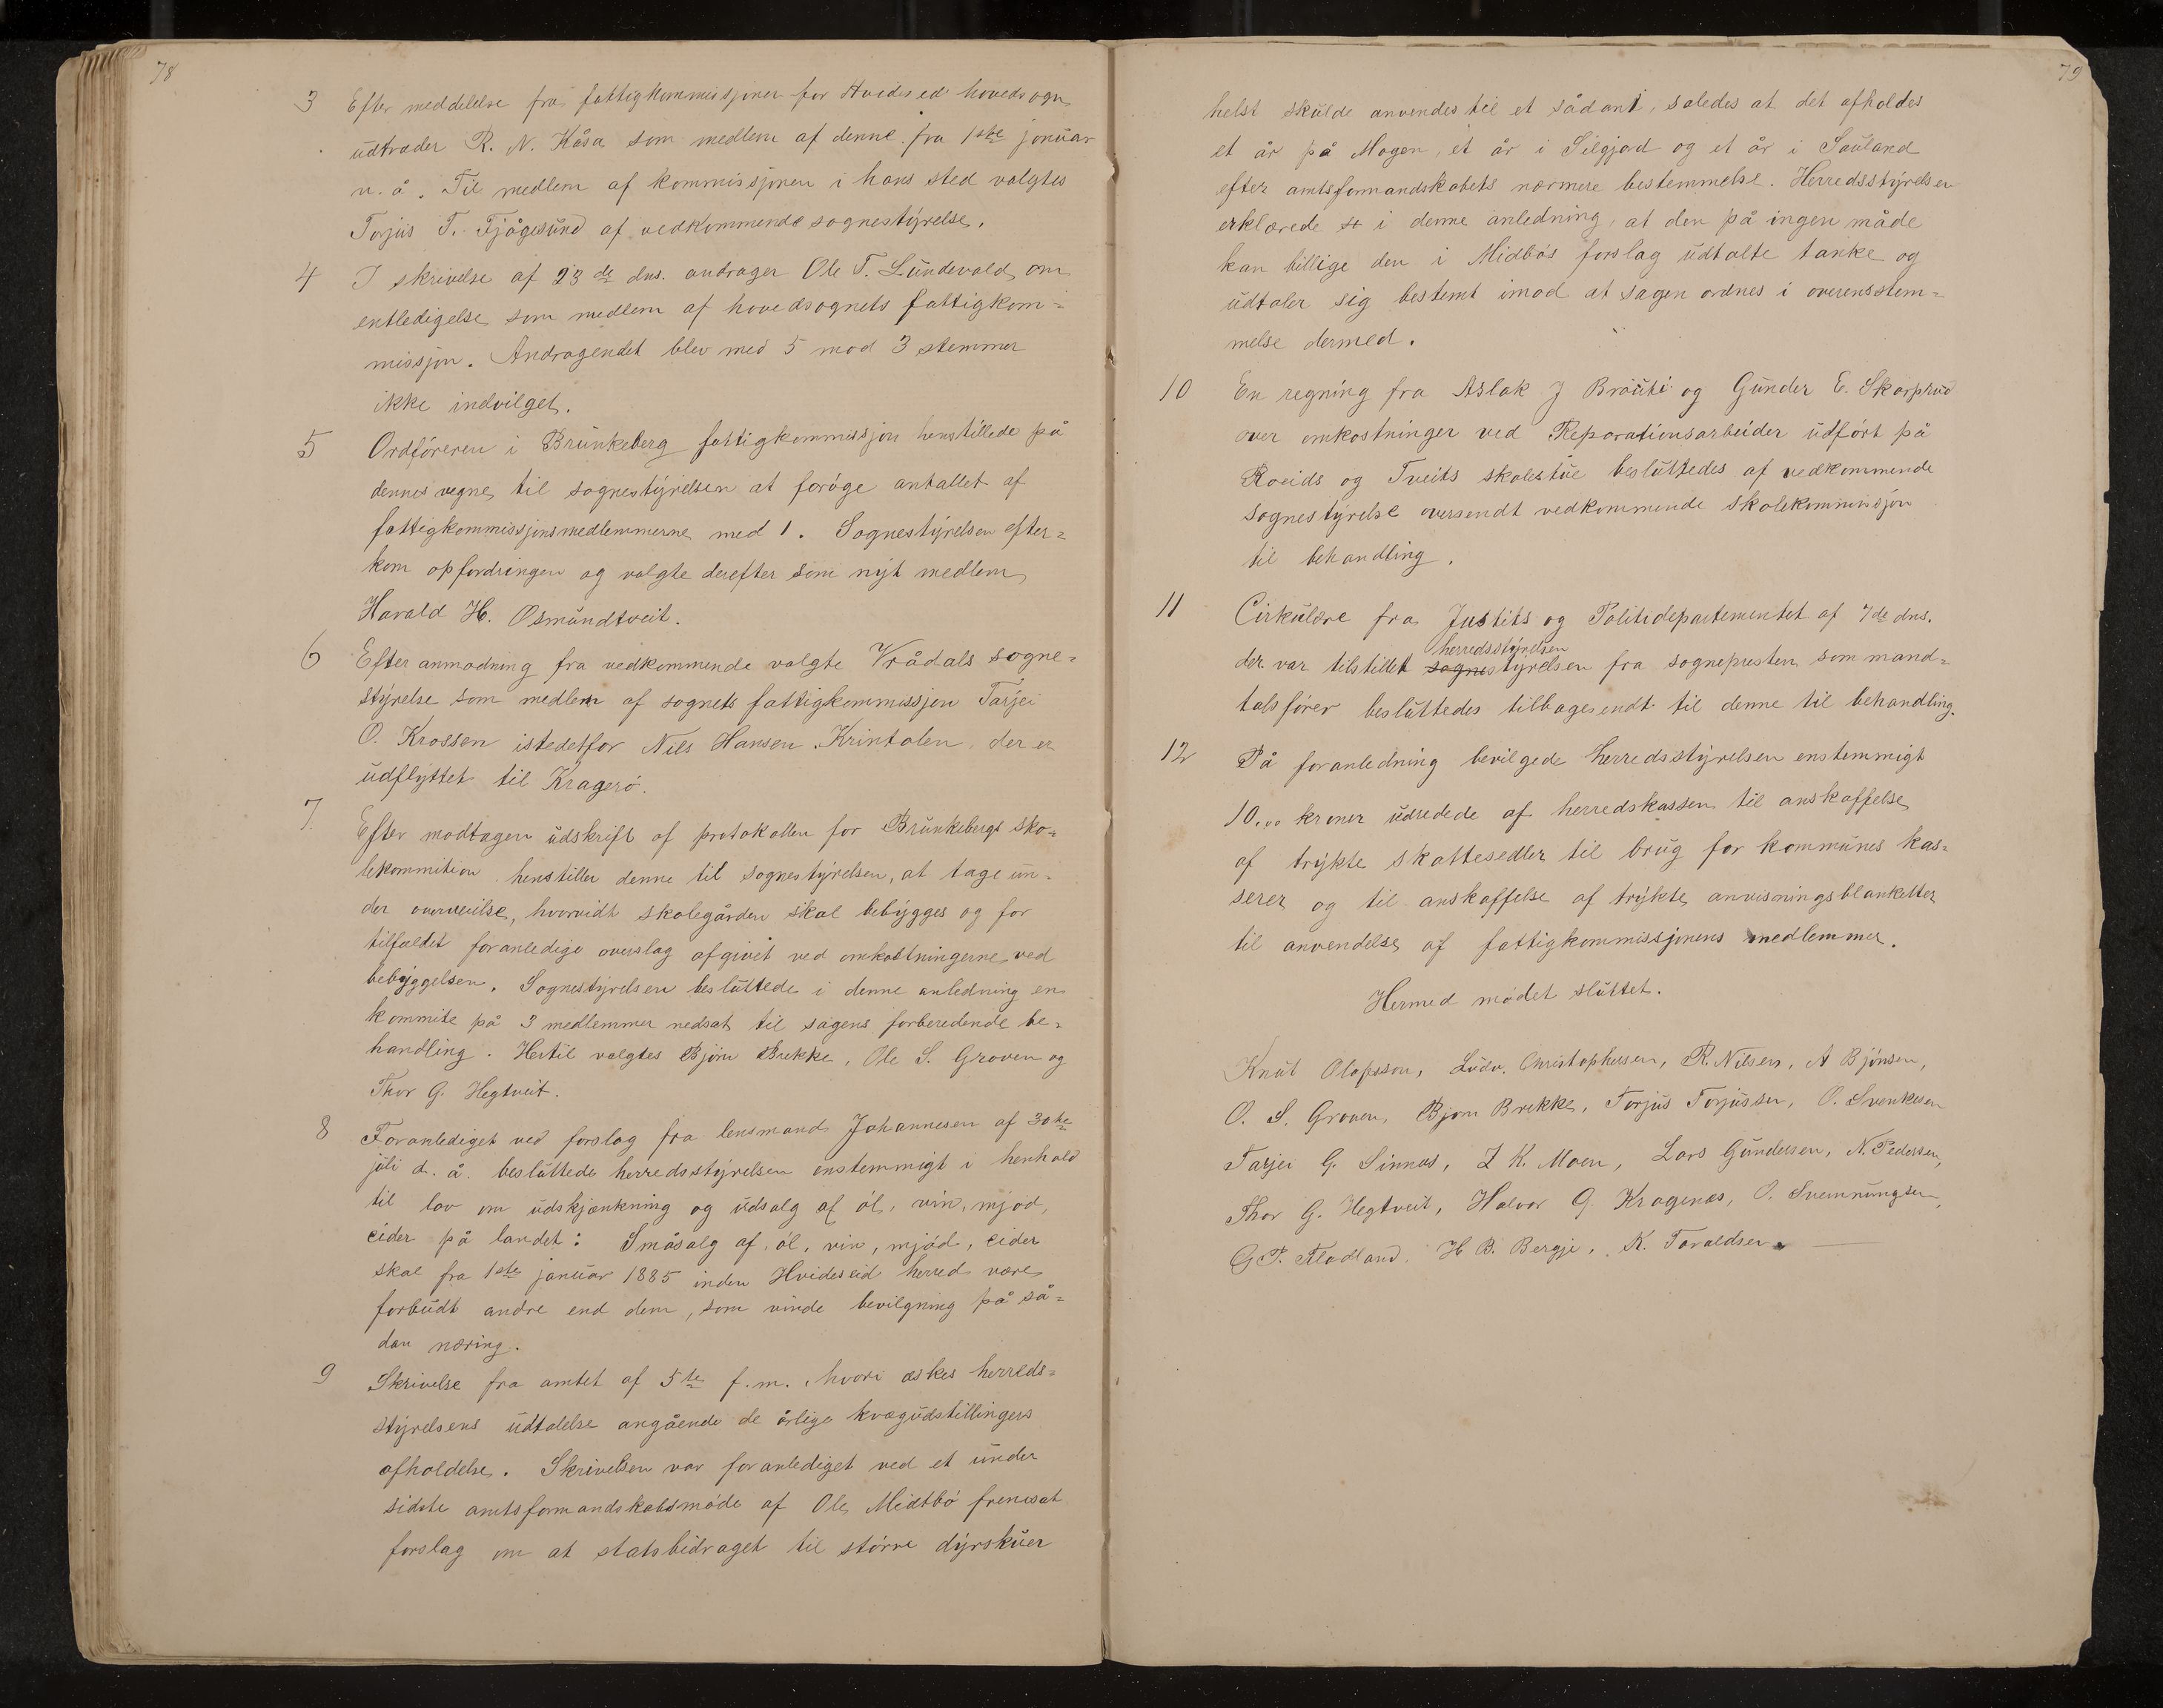 78
3 Efter meddelelse fra fattigkommissjonen for Hvidesed hovedsogn
udtræder R. N. Kåsa som medlem af denne fra 1ste januar
n. å. Til medlem af kommissjonen i hans sted valgtes
Torjus T. Fjågesund af vedkommende sognestyrelse.
4 I skrivelse af 23de dns. andrager Ole T. Lundevald om
entledigelse som medlem af hovedsognets fattigkom=
missjon. Andragendet blev med 5 mod 3 stemmer
ikke indvilget.
5 Ordföreren i Brunkeberg fattigkommissjon henstillede på
dennes vegne til sognestyrelsen at foröge antallet af
fattigkommissjonsmedlemmerne med 1. Sognestyrelsen efter=
kom opfordringen og valgte derefter som nyt medlem
Harald H. Osmundtveit.
6 Efter anmodning fra vedkommende valgte Vrådals sogne=
styrelse som medlem af sognets fattigkommissjon Tarjei
O. Krossen istedetfor Nils Hansen Krintolen, der er
udflyttet til Kragerö.
7. Efter modtagen udskrift af protokollen for Brunkebergs sko=
lekommition henstiller denne til sognestyrelsen, at tage un=
der overveielse, hvorvidt skolegården skal bebygges og for
tilfældet foranledige overslag afgivet ved omkostningerne ved
bebyggelsen. Sognestyrelsen besluttede i denne anledning en
kommite på 3 medlemmer nedsat til sagens forberedende be=
handling. Hertil valgtes Björn Brekke, Ole S. Groven og
Thor G. Hegtveit.
8 Foranlediget ved forslag fra lensmand Johannesen af 30te
juli d. å. besluttede herredsstyrelsen enstemmigt i henhold
til lov om udskjænkning og udsalg af öl, vin, mjöd,
cider på landet: Småsalg af öl, vin, mjöd, cider
skal fra 1ste januar 1885 inden Hvideseid herred være
forbudt andre end dem, som vinde bevilgning på så=
dan næring.
9 Skrivelse fra amtet af 5te f.m. hvori æskes herreds=
styrelsens udtalelse angående de årlige kvægudstillingers
afholdelse. Skrivelsen var foranlediget ved et under
sidste amtsformandskabsmöde af Ole Midtbö fremsat
forslag om at statsbidraget til större dyrskuer
79
helst skulde anvendes til et sådant, således at det afholdes
et år på Mogen, et år i Silgjord og et år i Sauland
efter amtsformandskabets nærmere bestemmelse. Herredsstyrelsen
erklærede i denne anledning, at den på ingen måde
kan billige den i Midbös forslag udtalte tanke og
udtaler sig bestemt imod at sagen ordnes i overensstem=
melse dermed.
10 En regning fra Aslak J Bråuti og Gunder E. Skarprud
over omkostninger ved Reparationsarbeider udfört på
Roeids og Tveits skolestue besluttedes af vedkommende
sognestyrelse oversendt vedkommende skolekommissjon
til behandling.
11 Cirkulære fra Justits og Politidepartementet af 7de dns.
herredsstyrelsen
der var tilstillet sognestyrelsen fra sognepresten som mand=
talsförer besluttedes tilbagesendt til denne til behandling.
12 På foranledning bevilgede herredsstyrelsen enstemmigt
10.00 kroner udredede af herredskassen til anskaffelse
af trykte skattesedler til brug for kommunes kas=
serer og til anskaffelse af trykte anvisningsblanketter
til anvendelse af fattigkommissjonens medlemmer.
Hermed mödet sluttet.
Knut Olafsson, Ludv. Christophersen, R. Nilsen, A Bjönsen,
O. S. Groven, Bjorn Brekke, Torjus Torjussen, O. Svenkesen
Tarjei G. Sinnes, L K. Moen, Lars Gundersen, N. Pedersen,
Thor G. Hegtveit, Halvor G. Kragenæs, O. Svennungsen,
G P. Flodland, H B. Bergje, K. Taraldsen.